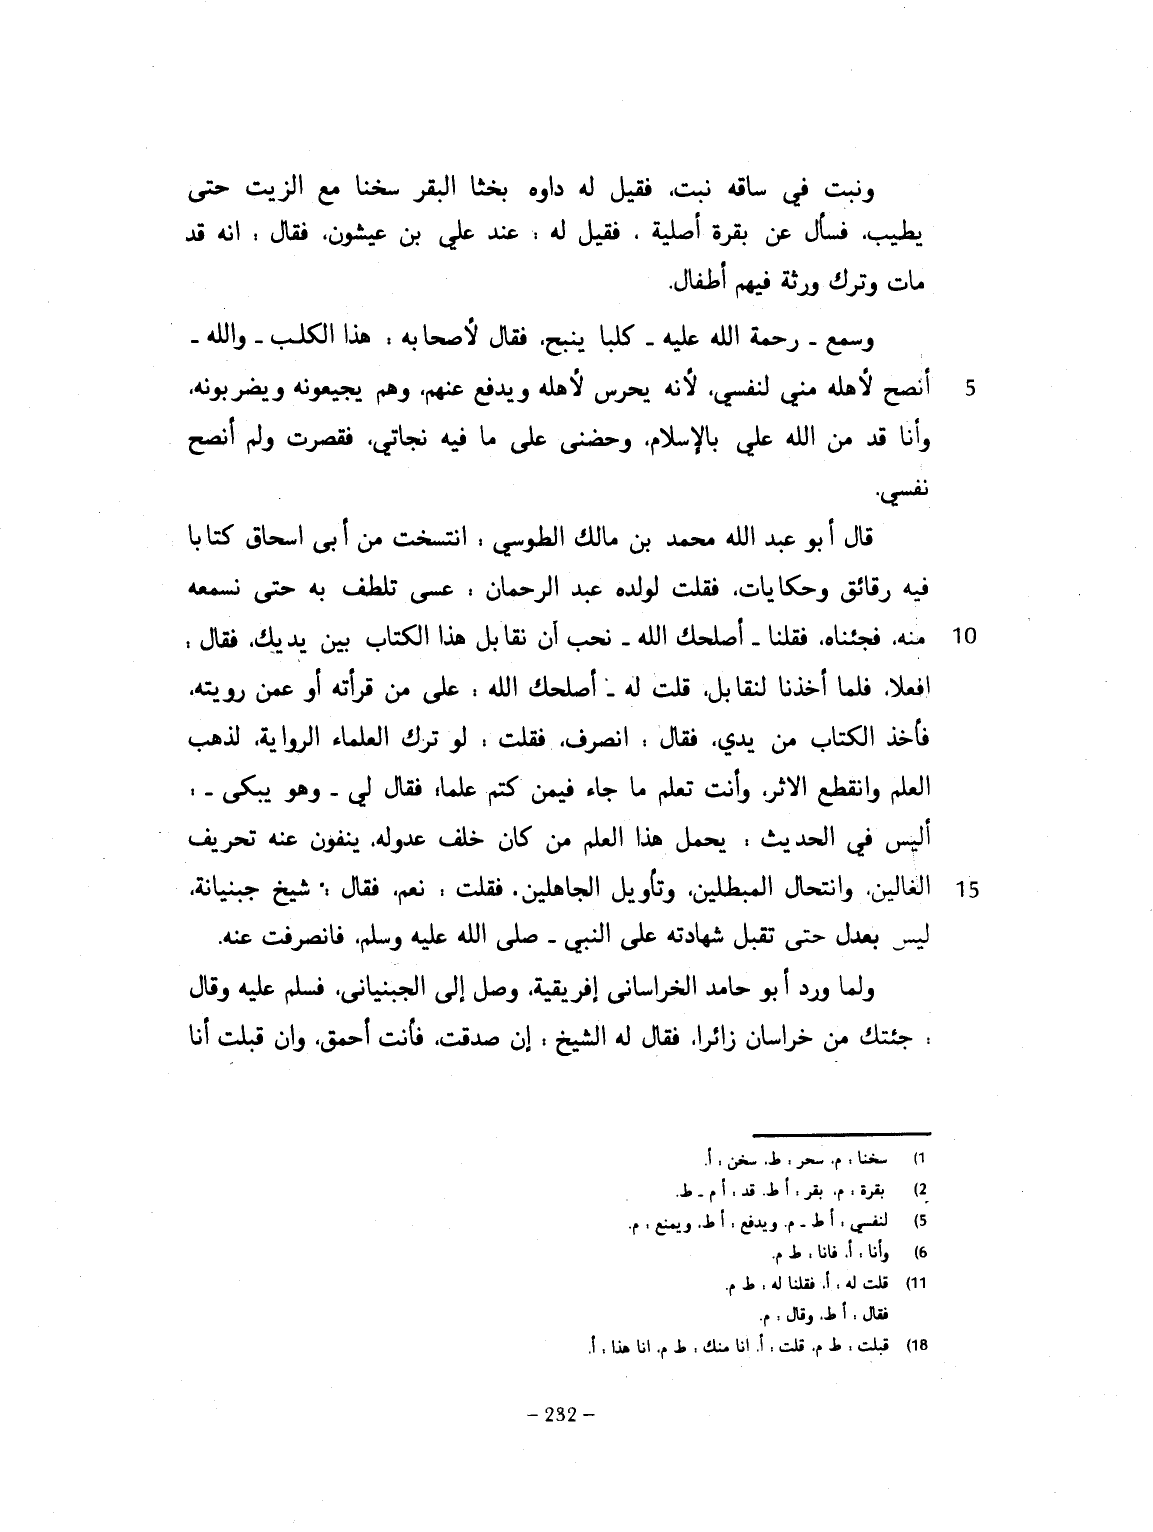 ونبت في ساقه نبت، فقيل له داوه بخثا البقر سخنا مع الزيت حتى
يطيب، فسأل عن بقرة أصلية . فقيل له : عند علي بن عيشون، فقال : انه قد
مات وترك ورثة فيهم أطفال.
وسمع ـ رحمة الله عليه ـ كلبا ينبح، فقال لأصحابه : هذا الكلب ـ والله ـ
5 أنصح لأهله مني لنفسي، لأنه يحرس لأهله ويدفع عنهم، وهم يجيعونه ويضربونه،
وأنا قد من الله علي بالإسلام، وحضنى على ما فيه نجاتي، فقصرت ولم أنصح
نفسي.
قال أبو عبد الله محمد بن مالك الطوسي : انتسخت من أبى اسحاق كتابا
فيه رقائق وحكايات، فقلت لولده عبد الرحمان : عسى تلطف به حتى نسمعه
10 منه، فجئناه، فقلنا ـ أصلحك الله ـ نحب أن نقابل هذا الكتاب بين يديك، فقال :
افعلا، فلما أخذنا لنقابل، قلت له ـ أصلحك الله : على من قرأته أو عمن رويته،
فأخذ الكتاب من يدي، فقال : انصرف، فقلت : لو ترك العلماء الرواية، لذهب
العلم وانقطع الاثر، وأنت تعلم ما جاء فيمن كتم علما؛ فقال لي ـ وهو يبكى ـ :
أليس في الحديث : يحمل هذا العلم من كان خلف عدوله، ينفون عنه تحريف
15 الغالين، وانتحال المبطلين، وتأويل الجاهلين. فقلت : نعم، فقال : شيخ جبنيانة،
ليس بعدل حتى تقبل شهادته على النبي ـ صلى الله عليه وسلم، فانصرفت عنه.
ولما ورد أبو حامد الخراسانى إفريقية، وصل إلى الجبنيانى، فسلم عليه وقال
: جئتك من خراسان زائرا، فقال له الشيخ : إن صدقت، فأنت أحمق، وان قبلت أنا
1) سخنا : م، سحر : ط، سخن : أ.
2) بقرة : م، بقر : أ ط. قد : أ م ـ ط.
5) لنفسي : أ ط ـ م. ويدفع : أ ط، ويمنع : م.
6) وأنا : أ، فانا : ط م.
11) قلت له : أ، فقلنا له : ط م.
فقال : أ ط، وقال : م.
18) قبلت : ط م، قلت : أ. انا منك : ط م، انا هذا : أ.
– 232 –